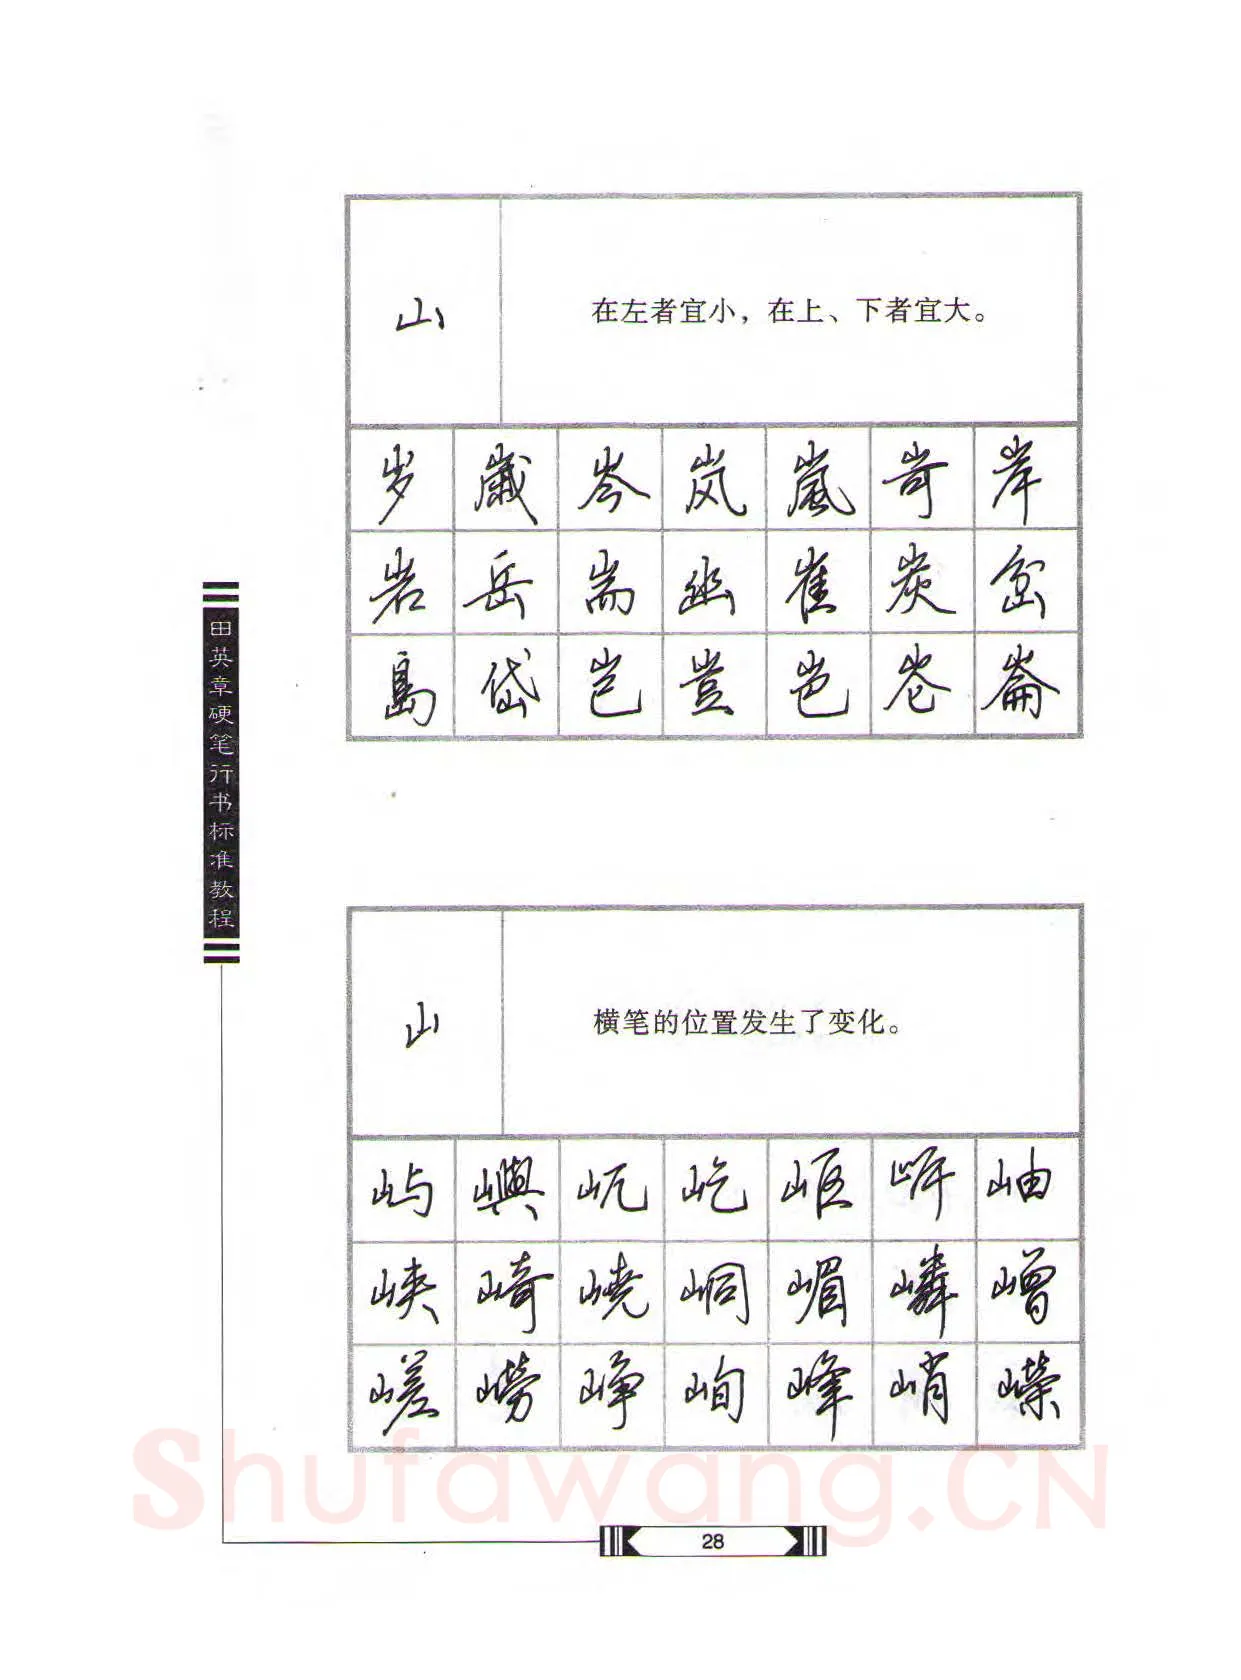 山
在左者宜小，在上、下者宜大。
岁 歲 岑 岚 嵐 岢 岸
岩 岳 耑 幽 崔 炭 岔
島 岱 岂 豈 岜 岺 崙
山
横笔的位置发生了变化。
屿 嶼 岏 屹 岖 岍 岫
峡 崎 嶢 峒 嵋 嶙 嶒
嵯 嶗 峥 峋 峰 峭 嶸
田英章硬笔行书标准教程
28
Shufawang.CN